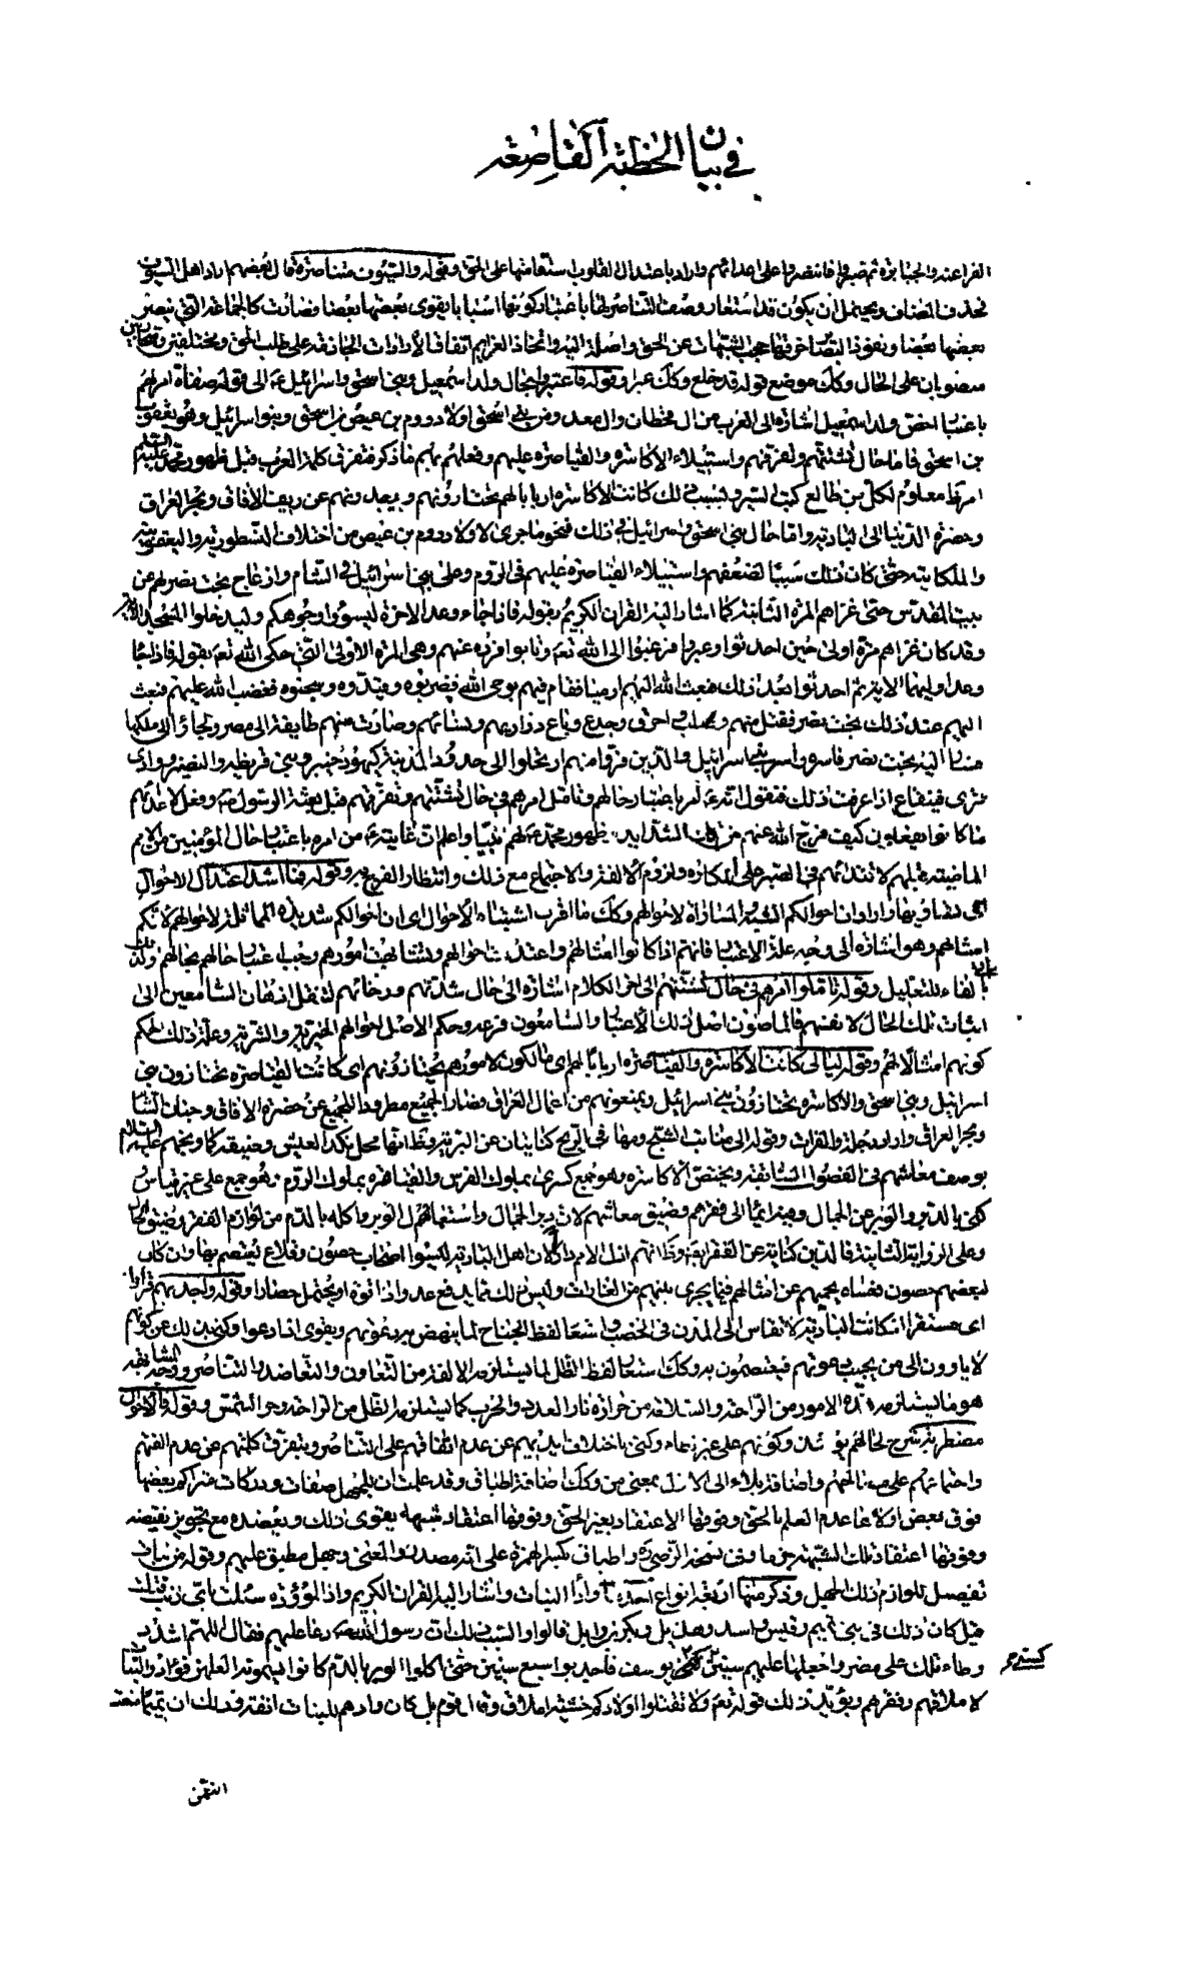 في بيان الخطبة القاصعة
الفراعنة والجبابرة ثم صبروا فانتصروا على اعدائهم واراد باعتدال القلوب استقامتها على الحق وقوله والسيوف متناصرة قال بعضهم اراد اهل السيوف
فحذف المضاف ويحتمل ان يكون قد استعار وصف التناصر لها باعتبار كونها اسبابا يقوى بعضها بعضا فصارت كالجماعة التي ينصر
بعضها بعضا ونفوذ البصائر خرقها حجب الشبهات عن الحق واصلة اليه واتحاد العزائم اتفاق الارادات الجازمة على طلب الحق ومختلفين ومتحاربين
منصوبان على الحال وكذا موضع قوله قد خلع وكذا عبرا وقوله فاعتبروا بحال ولد اسمعيل وبني اسحق واسرائيل ع الى قوله صفاة امرأ لهم
باعتبار اخص ولد اسمعيل اشارة الى العرب من ال قحطان وال معد ومن بني اسحق اولاد روم بن عيص بن اسحق وبنوا اسرائيل وهو يعقوب
بن اسحق فاما حال تشتتهم وتفرقهم واستيلاء الاكاسرة والقياصرة عليهم وفعلهم بهم ما ذكر فتفرق كلمة العرب قبل ظهور محمد عليه السلم
امر ظ معلوم لكل من طالع كتب السير وبسبب ذلك كانت الاكاسرة اربابا لهم يحتازونهم ويبعدونهم عن ريف الافاق وبحر العراق
وخضرة الدنيا الى البادية واما حال بني اسحق واسرائيل في ذلك فنحو ما جرى لاولاد روم بن عيص من اختلاف النسطورية واليعقوبية
والملكائية حتى كان ذلك سببا لضعفهم واستيلاء القياصرة عليهم في الروم وعلى بني اسرائيل في الشام وازعاج بخت نصر لهم عن
بيت المقدس حتى غزاهم المرة الثانية كما اشار اليه القران الكريم بقوله فاذا جاء وعد الاخرة ليسوؤا وجوهكم وليدخلوا المسجد الاية
وقد كان غزاهم مرة اولى حين احدثوا وغيروا فرغبوا الى الله تع وتابوا فرده عنهم وهي المرة الاولى التي حكى الله تع بقوله فاذا جاء
وعد اوليهما الاية ثم احدثوا بعد ذلك فبعث الله اليهم ارميا فقام فيهم بوحي الله فضربوه وقيدوه وسجنوه فغضب الله عليهم فبعث
اليهم عند ذلك بخت نصر فقتل منهم وصلب واحرق وجدع وباع ذراريهم ونسائهم وصارت منهم طايفة الى مصر ولجاؤا الى ملكها
فسار اليه بخت نصر فاسره واسر بني اسرائيل والذين فروا منهم ارتحلوا الى حدود المدينة كيهود خيبر وبني قريظة والنضير ووادي
القرى وقينقاع اذا عرفت ذلك فنقول انه ع امر باعتبار حالهم وتامل امرهم في حال تشتتهم وتفرقهم قبل بعثة الرسول ص وفعل الاعداء بهم
ما كانوا يفعلون كيف فرج الله عنهم من تلك الشدايد بظهور محمد ص لهم نبيا واعلم ان غايته ع من امره باعتبار حال المؤمنين من الامم
الماضية قبلهم الاقتداء بهم في الصبر على المكاره ولزوم الالفة والاجتماع مع ذلك وانتظار الفرج به وقوله فما اشد اعتدال الاحوال
اي تساويها واراد ان احوالكم الشبيهة المساواة لاحوالهم وكذا ما اقرب اشتباه الاحوال اي ان احوالكم شديدة المماثلة لاحوالهم لانكم
امثالهم وهو اشارة الى وجه علة الاعتبار فانهم اذا كانوا امثالهم واعتدلت احوالهم وتشابهت امورهم وجب اعتبار حالهم بحالهم ولذلك اتى
بالفاء للتعليل وقوله تاملوا امرهم في حال تشتتهم الى اخر الكلام اشارة الى حال شدتهم ورخائهم لتنقل اذهان السامعين الى
اثبات تلك الحال لانفسهم فالماضون اصل ذلك الاعتبار والسامعون فرعه وحكم الاصل احوالهم الخيرية والشرية وعلة ذلك الحكم
كونهم امثالا لهم وقوله ليالى كانت الاكاسرة والقياصرة اربابا لهم اي مالكون لامورهم يحتازونهم اي كانت القياصرة يحتازون بني
اسرائيل وبني اسحق والاكاسرة يحتازون بني اسرائيل ويمنعونهم من اعمال العراق فصار الجميع مطرودا للجميع عن خضرة الافاق وجنات الشام
وبحر العراق واراد دجلة والفرات وقوله الى منابت الشيح ومهافى الريح كنايتان عن البرية وظ انها محل نكد العيش وضيقه كما وبخهم عليه السلام
بوصف معاشهم في الفصول السابقة ويختص الاكاسرة وهو جمع كسرى بملوك الفرس والقياصرة بملوك الروم وهو جمع على غير قياس
كنى بالدبر والوبر عن الجمال وهذا ايما الى فقرهم وضيق معاشهم لان دبر الجمال واستعمالهم الوبر واكله بالدم من لوازم الفقر وضيق الحال
وعلى الرواية الثانية فالدين كناية عن الفقر ايضا وظ انهم اذل الامم دارا لان اهل البادية ليسوا اصحاب حصون وقلاع يعتصم بها وان كان
لبعضهم حصون فعساه يحميهم عن امثالهم فيما يجرى بينهم من الغارات وليس ذلك مما يدفع عدوا ذا قوة او يحتمل حصارا وقوله واجدبهم قرارا
اى مستقرا اذ كانت البادية لا تقاس الى المدن في الخصب واستعار لفظ الجناح لما ينهض به دعوتهم ويقوى اذا دعوا وكنى بذلك عن كونهم
لا ياوون الى من يجيب دعوتهم فيعتصمون به وكذا استعار لفظ الظل لما يستلزمه الالفة من التعاون والتعاضد والتناصر ووجه المشابهة
هو ما يستلزمه هذه الامور من الراحة والسلامة من حرارة نار العدو والحرب كما يستلزمه الظل من الراحة وحر الشمس وقوله فالاحوال
مضطربة شرح لحالهم يومئذ وكونهم على غير نظام وكنى باختلاف ايديهم عن عدم اتفاقهم على التناصر وبتفرق كلمتهم عن عدم الفتهم
واجتماعهم على مصالحهم واضافة بلاء الى الازل بمعنى من وكذا اضافة اطباق وقد علمت ان للجهل صفات ودركات متراكم بعضها
فوق بعض اولها عدم العلم بالحق وفوقها الاعتقاد بغير الحق وفوقها اعتقاد شبهة يقوى ذلك ويعضده مع تجويز نقيضه
وفوقها اعتقاد تلك الشبهة جزما وفي نسخة الرضى ره واطباق بكسر الهمزة على انه مصدر والمعنى وجهل مطبق عليهم وقوله من بنات
تفصيل للوازم ذلك الجهل وذكر منها اربعة انواع احدها وأد البنات واشار اليه القران الكريم واذا المؤودة سئلت باي ذنب قتلت
قيل كان ذلك في بني تميم وقيس واسد وهذيل وبكر بن وايل قالوا والسبب في ذلك ان رسول الله ص دعا عليهم فقال اللهم اشدد
وطاءتك على مضر واجعلها عليهم سنين كسني يوسف فاجدبوا سبع سنين حتى اكلوا الوبر بالدم كانوا يسمونه العلهز فوأدوا البنات
لاملاقهم وفقرهم ويؤيد ذلك قوله تع ولا تقتلوا اولادكم خشية املاق وقال قوم بل كان وأدهم للبنات انفة وذلك ان تميما منعت
النعمن